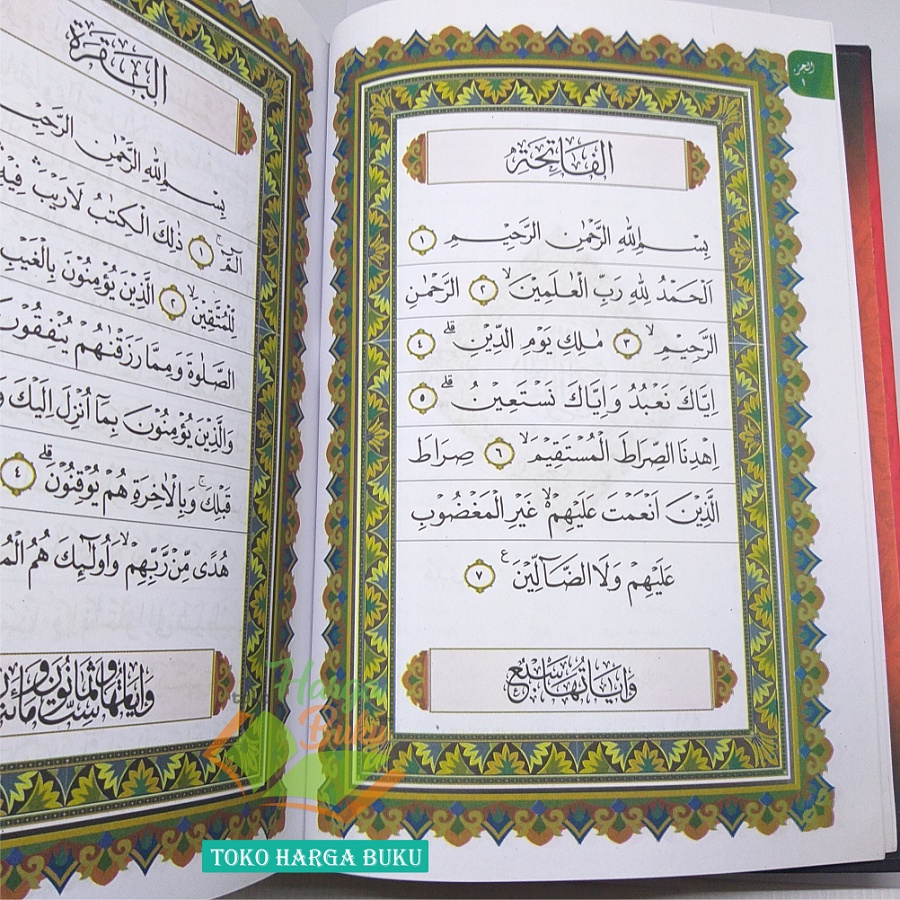 الجزء
١
الفاتحة
بِسْمِ اللهِ الرَّحْمٰنِ الرَّحِيْمِ ١
اَلْحَمْدُ لِلّٰهِ رَبِّ الْعٰلَمِيْنَۙ ٢ الرَّحْمٰنِ
الرَّحِيْمِۙ ٣ مٰلِكِ يَوْمِ الدِّيْنِۗ ٤
اِيَّاكَ نَعْبُدُ وَاِيَّاكَ نَسْتَعِيْنُۗ ٥
اِهْدِنَا الصِّرَاطَ الْمُسْتَقِيْمَۙ ٦ صِرَاطَ
الَّذِيْنَ اَنْعَمْتَ عَلَيْهِمْۙ غَيْرِ الْمَغْضُوْبِ
عَلَيْهِمْ وَلَا الضَّاۤلِّيْنَࣖ ٧
وآياتها سبع
البقرة
بِسْمِ اللهِ الرَّحْمٰنِ الرَّحِيْ
الۤمّۤۚ ١ ذٰلِكَ الْكِتٰبُ لَارَيْبَۛ فِيْهِ
لِّلْمُتَّقِيْنَۙ ٢ الَّذِيْنَ يُؤْمِنُوْنَ بِالْغَيْبِ
الصَّلٰوةَ وَمِمَّا رَزَقْنٰهُمْ يُنْفِقُوْنَ
وَالَّذِيْنَ يُؤْمِنُوْنَ بِمَآ اُنْزِلَ اِلَيْكَ وَ
قَبْلِكَۚ وَبِالْاٰخِرَةِ هُمْ يُوْقِنُوْنَۗ ٤
هُدًى مِّنْ رَّبِّهِمْۙ وَاُولٰۤىِٕكَ هُمُ الْمُ
وآياتها ست وثمانون و
Harga
Buku
TOKO HARGA BUKU